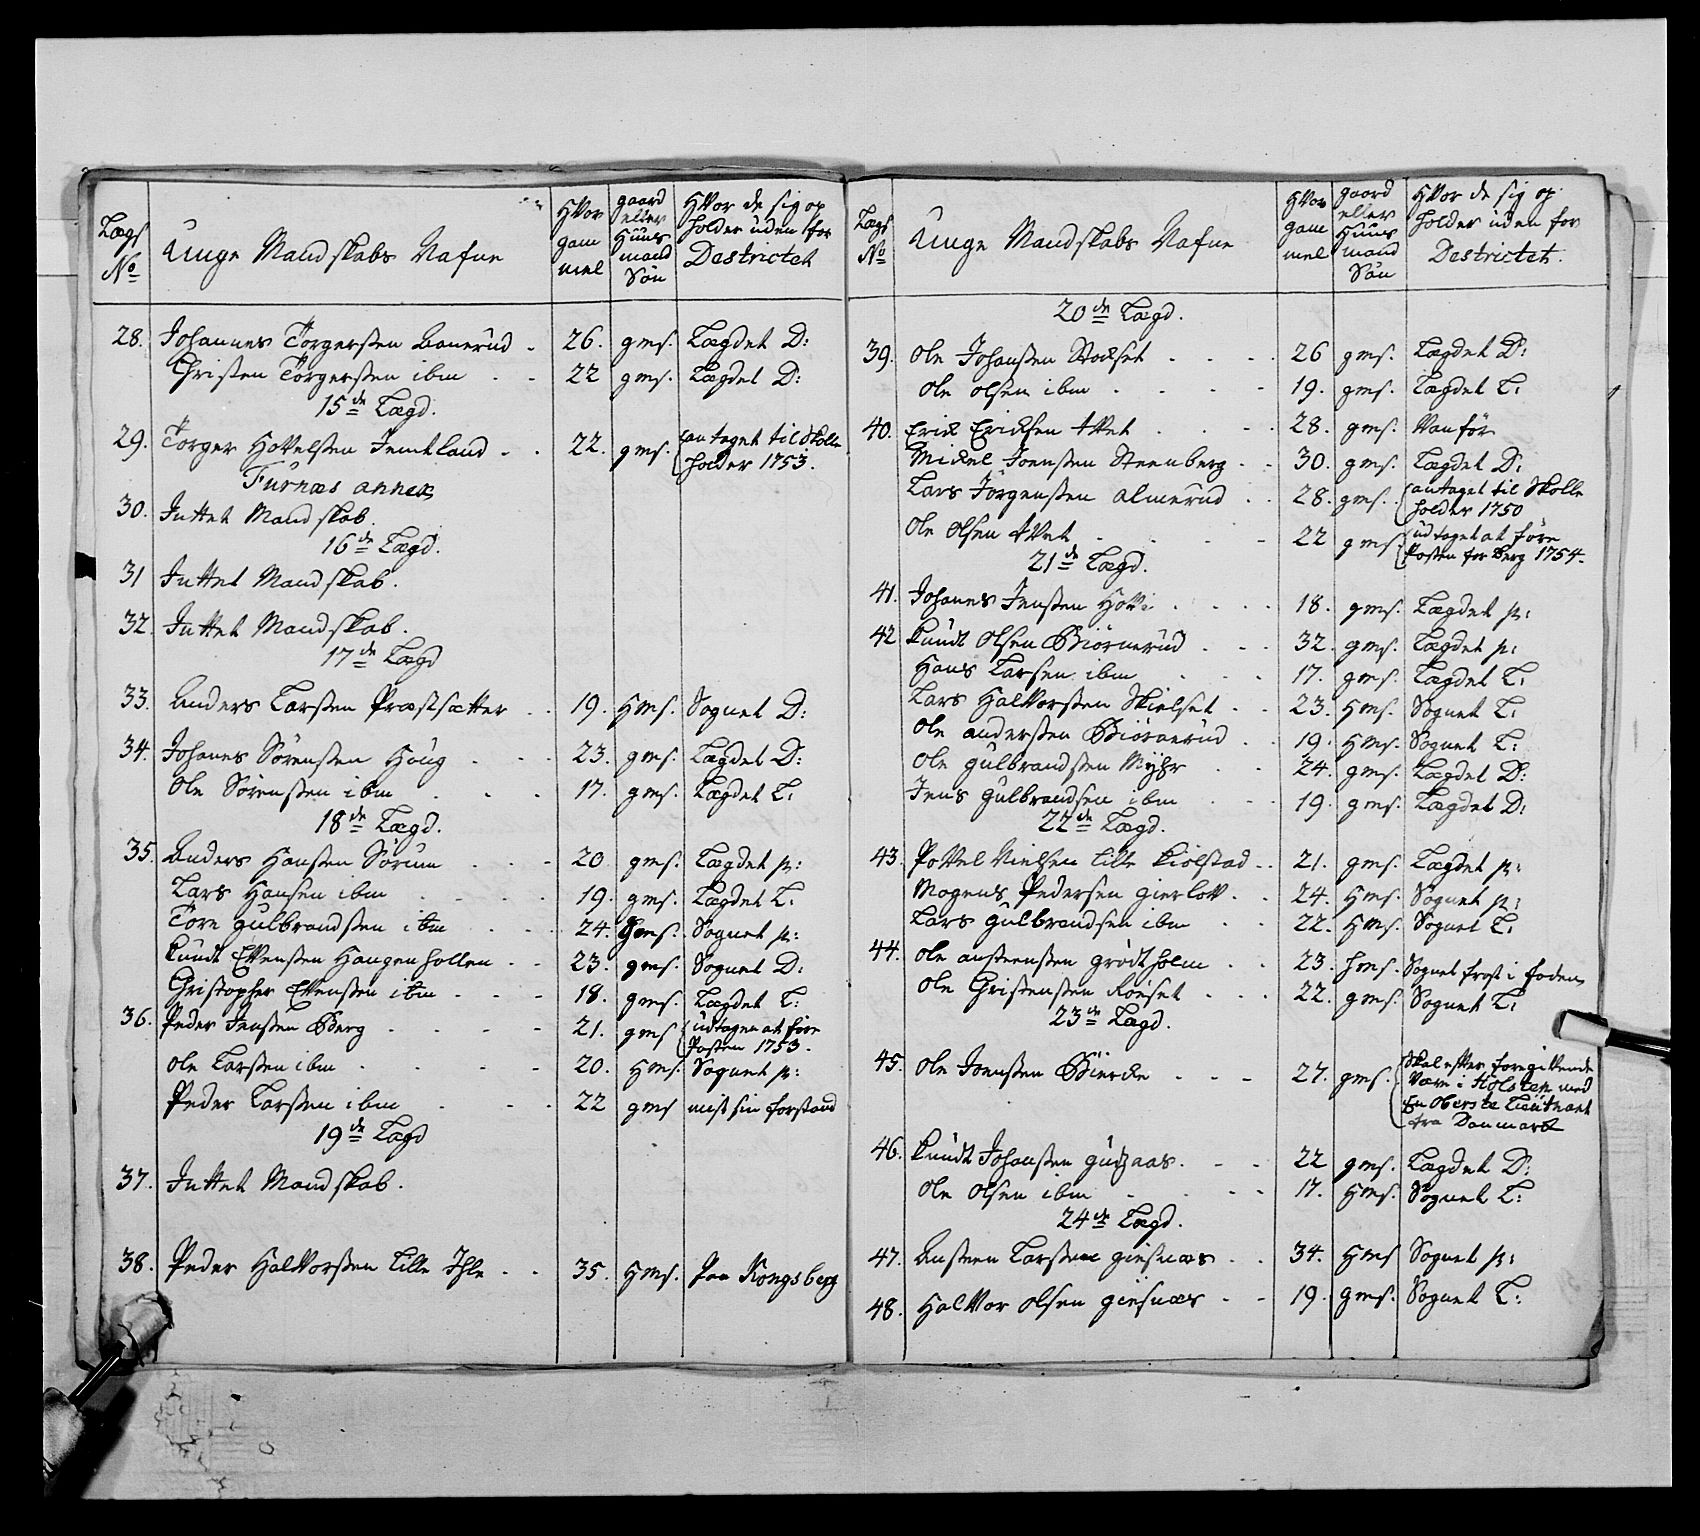 Lægs No | Unge Mandskabs Nafne | Hvor gam mel | gaard eller Huus mand Søn | Hvor de sig op holder uden for Destrictet
28. Johannes Törgersen Banerud - 26. gms. Lægdet D:
Christen Törgersen ibm - - 22 gms. Lægdet D:
15de Lægd.
29. Törger Hovelsen Jemtland - - 22. gms. antaget til Skolle
holder 1753.
Furnæs annex
30. Intet Mandskab.
16de Lægd.
31 Intet Mandskab.
32. Intet Mandskab.
17de Lægd
33. Anders Larsen Præstsætter - - 19. Hms. Sognet D:
34. Johanes Sörensen Houg - - - 23. gms. Lægdet D:
Ole Sörensen ibm - - - 17. gms. Lægdet L:
18de Lægd.
35. Anders Hansen Sörum - - - 20 gms. Lægdet p:
Lars Hansen ibm - - - - 19. gms. Lægdet L:
Töre gulbrandsen ibm - - - 24. Hms. Sognet p:
Knudt Evensen Haugenhollen - - 23. gms. Sognet D:
Christopher Evensen ibm - - - 18. gms. Lægdet L:
36. Peder Jensen Berg - - - - 21. gms udtagen at före
Posten 1753.
Ole Larsen ibm - - - - 20. Hms. Sognet p:
Peder Larsen ibm - - - 22 gms mist sin forstand
19de Lægd
37. Intet Mandskab.
38. Peder Halvorsen Lille Ihle - - 35. Hms. Paa Kongsberg
Lægs No | Unge Mandskabs Nafne | Hvor gam mel | gaard eller Huus mand Søn | Hvor de sig op holder uden for Destrictet.
20de Lægd.
39. Ole Johansen Stockset - - - - 26 gms. Lægdet D:
Ole Olsen ibm - - - - 19. gms. Lægdet L:
40. Erick Ericksen tvet - - - 28. gms. Vanför
Mickel Joensen Steenberg - - 30. gms. Lægdet D:
Lars Jörgensen almerud - - 28. gms. antaget til Skolle
holder 1750
Ole Olsen tvet - - - - 22 gms udtaget at före
Posten for Berg 1754.
21de Lægd.
41. Johanes Jensen Hov - - - 18. gms. Lægdet p:
42 Knudt Olsen Biörnerud - - - 32. gms. Lægdet p:
Hans Larsen ibm - - - 17. gms. Lægdet L:
Lars Halvorsen Skielset - - 23. Hms. Sognet L:
Ole andersen Biörnerud - - 19. Hms. Sognet L:
Ole gulbrandsen Myhr - - 24. gms. Lægdet D:
Jens gulbrandsen ibm - - - 19. gms. Lægdet D:
22de Lægd.
43. Povel Nielsen Lille Kiölstad - - 21. gms. Lægdet p:
Mogens Pedersen gierlov - - 24. Hms. Sognet p:
Lars gulbrandsen ibm - - 22. Hms. Sognet L:
44. Ole anstensen grödtholm - - 23. Hms. Sognet frost i foden
Ole Christensen Röiset - - - 22. gms. Sognet L:
23de Lægd.
45. Ole Joensen Biercke - - - 27. gms. Skal efter foregivende
være i Holsten med
En Oberste Lieutnant
fra Danmark
46. Knudt Johansen gudsaas. - - 22 gms. Lægdet D:
Ole Olsen ibm - - - - 17. Hms. Sognet L:
24de Lægd.
47. Ansteen Larsen giesnæs - - 34. Hms Sognet p:
48. Halvor Olsen giesnæs - - 19. gms. Sognet L: